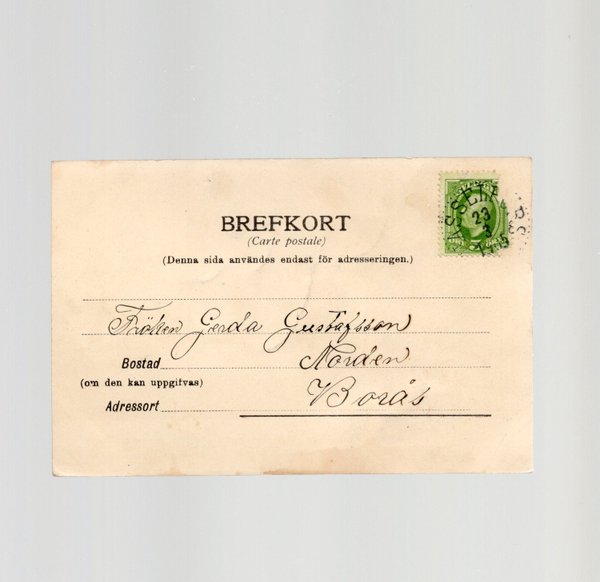 BREFKORT
(Carte postale)
(Denna sida användes endast för adresseringen.)
Fröken Gerda Gustafsson
Bostad Norden
(om den kan uppgifvas)
Adressort Borås
23
3